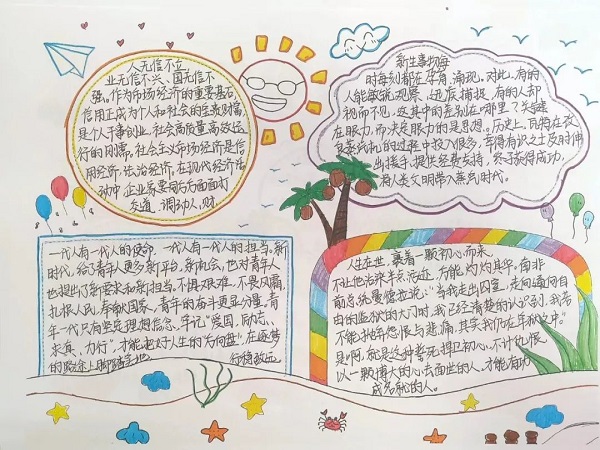 人无信不立
业无信不兴、国无信不
强。作为市场经济的重要基石,
信用正成为个人和社会的宝贵财富,
是个人干事创业,社会高质量,高效运
行的刚需。社会主义市场经济是信
用经济,法治经济,在现代经济活
动中,企业需要同方方面面打
交道,调动人,财
新生事物每
时每刻都在孕育,涌现。对此,有的
人能敏锐观察,迅疾捕捉,有的人却
视而不见,这其中的差别在哪里?关键
在眼力,而决定眼力的是思想。历史上,瓦特在改
良蒸汽机的过程中投入很多,幸得有识之士及时伸
出援手,提供经费支持,终于获得成功,
将人类文明带入蒸汽时代。
一代人有一代人的使命,一代人有一代人的担当。新
时代,给了青年更多新平台,新机会,也对青年人
也提出了新要求和新担当。不惧艰难,不畏风霜,
扎根人民,奉献国家,青年的奋斗更显分量,青
年一代只有坚定理想信念,牢记"爱国,励志,
求真,力行",才能把好人生的"方向盘",在逐梦
的路途上脚踏实地,行稳致远
人生在世,裹着一颗初心而来,
不让他沾染半点污迹,方能灼灼其华。南非
前总统曼德拉说:"当我走出囚室,走向通向自
由的监狱的大门时,我已经清楚的认识到,我若
不能抛弃怨恨与悲痛,其实我仍在牢狱之中。"
是啊,就是这种誓死捍卫初心,不计仇恨,
以一颗博大的心去面世的人,才能有功
成名就的人。